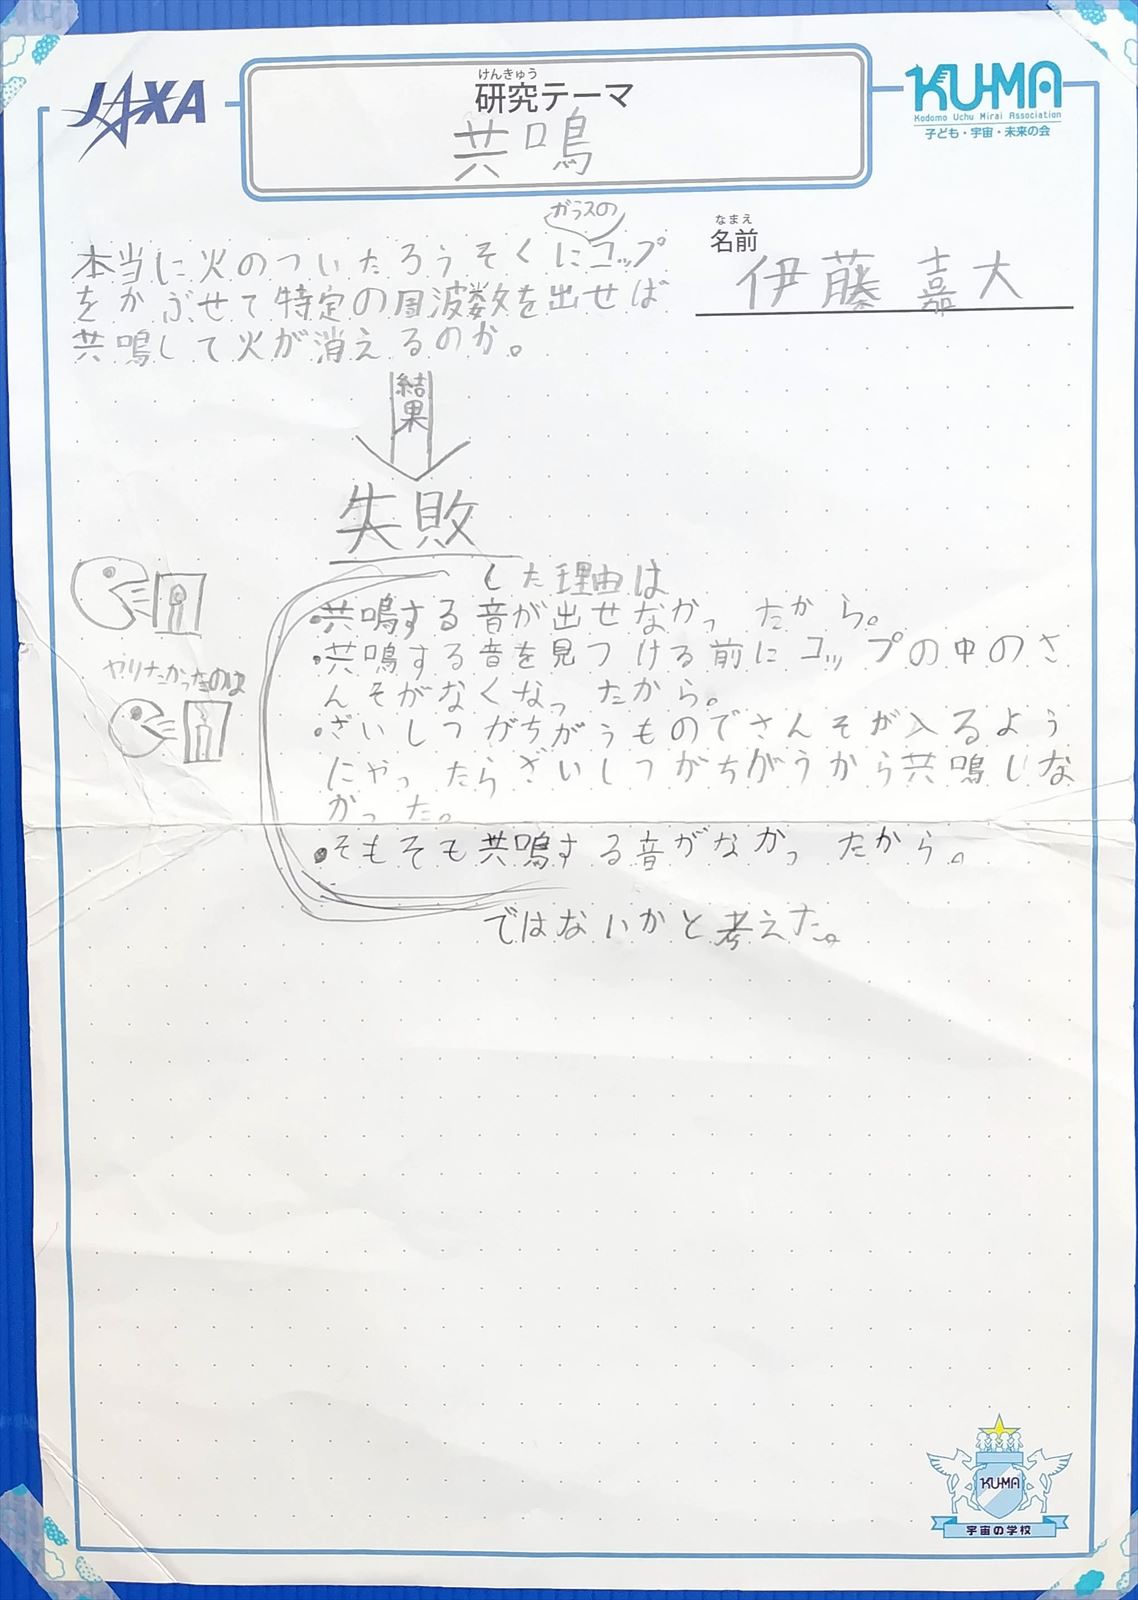 JAXA
けんきゅう
研究テーマ
共鳴
KU-MA
Kodomo Uchu Mirai Association
子ども・宇宙・未来の会
なまえ
名前
伊藤嘉大
ガラスの
本当に火のついたろうそくにコップ
をかぶせて特定の周波数を出せば
共鳴して火が消えるのか。
結果
失敗
した理由は
・共鳴する音が出せなかったから。
・共鳴する音を見つける前にコップの中のさ
んそがなくなったから。
・ざいしつがちがうものでさんそが入るよう
にやったらざいしつがちがうから共鳴しな
かった。
・そもそも共鳴する音がなかったから。
ではないかと考えた。
やりたかったのは
KU-MA
宇宙の学校